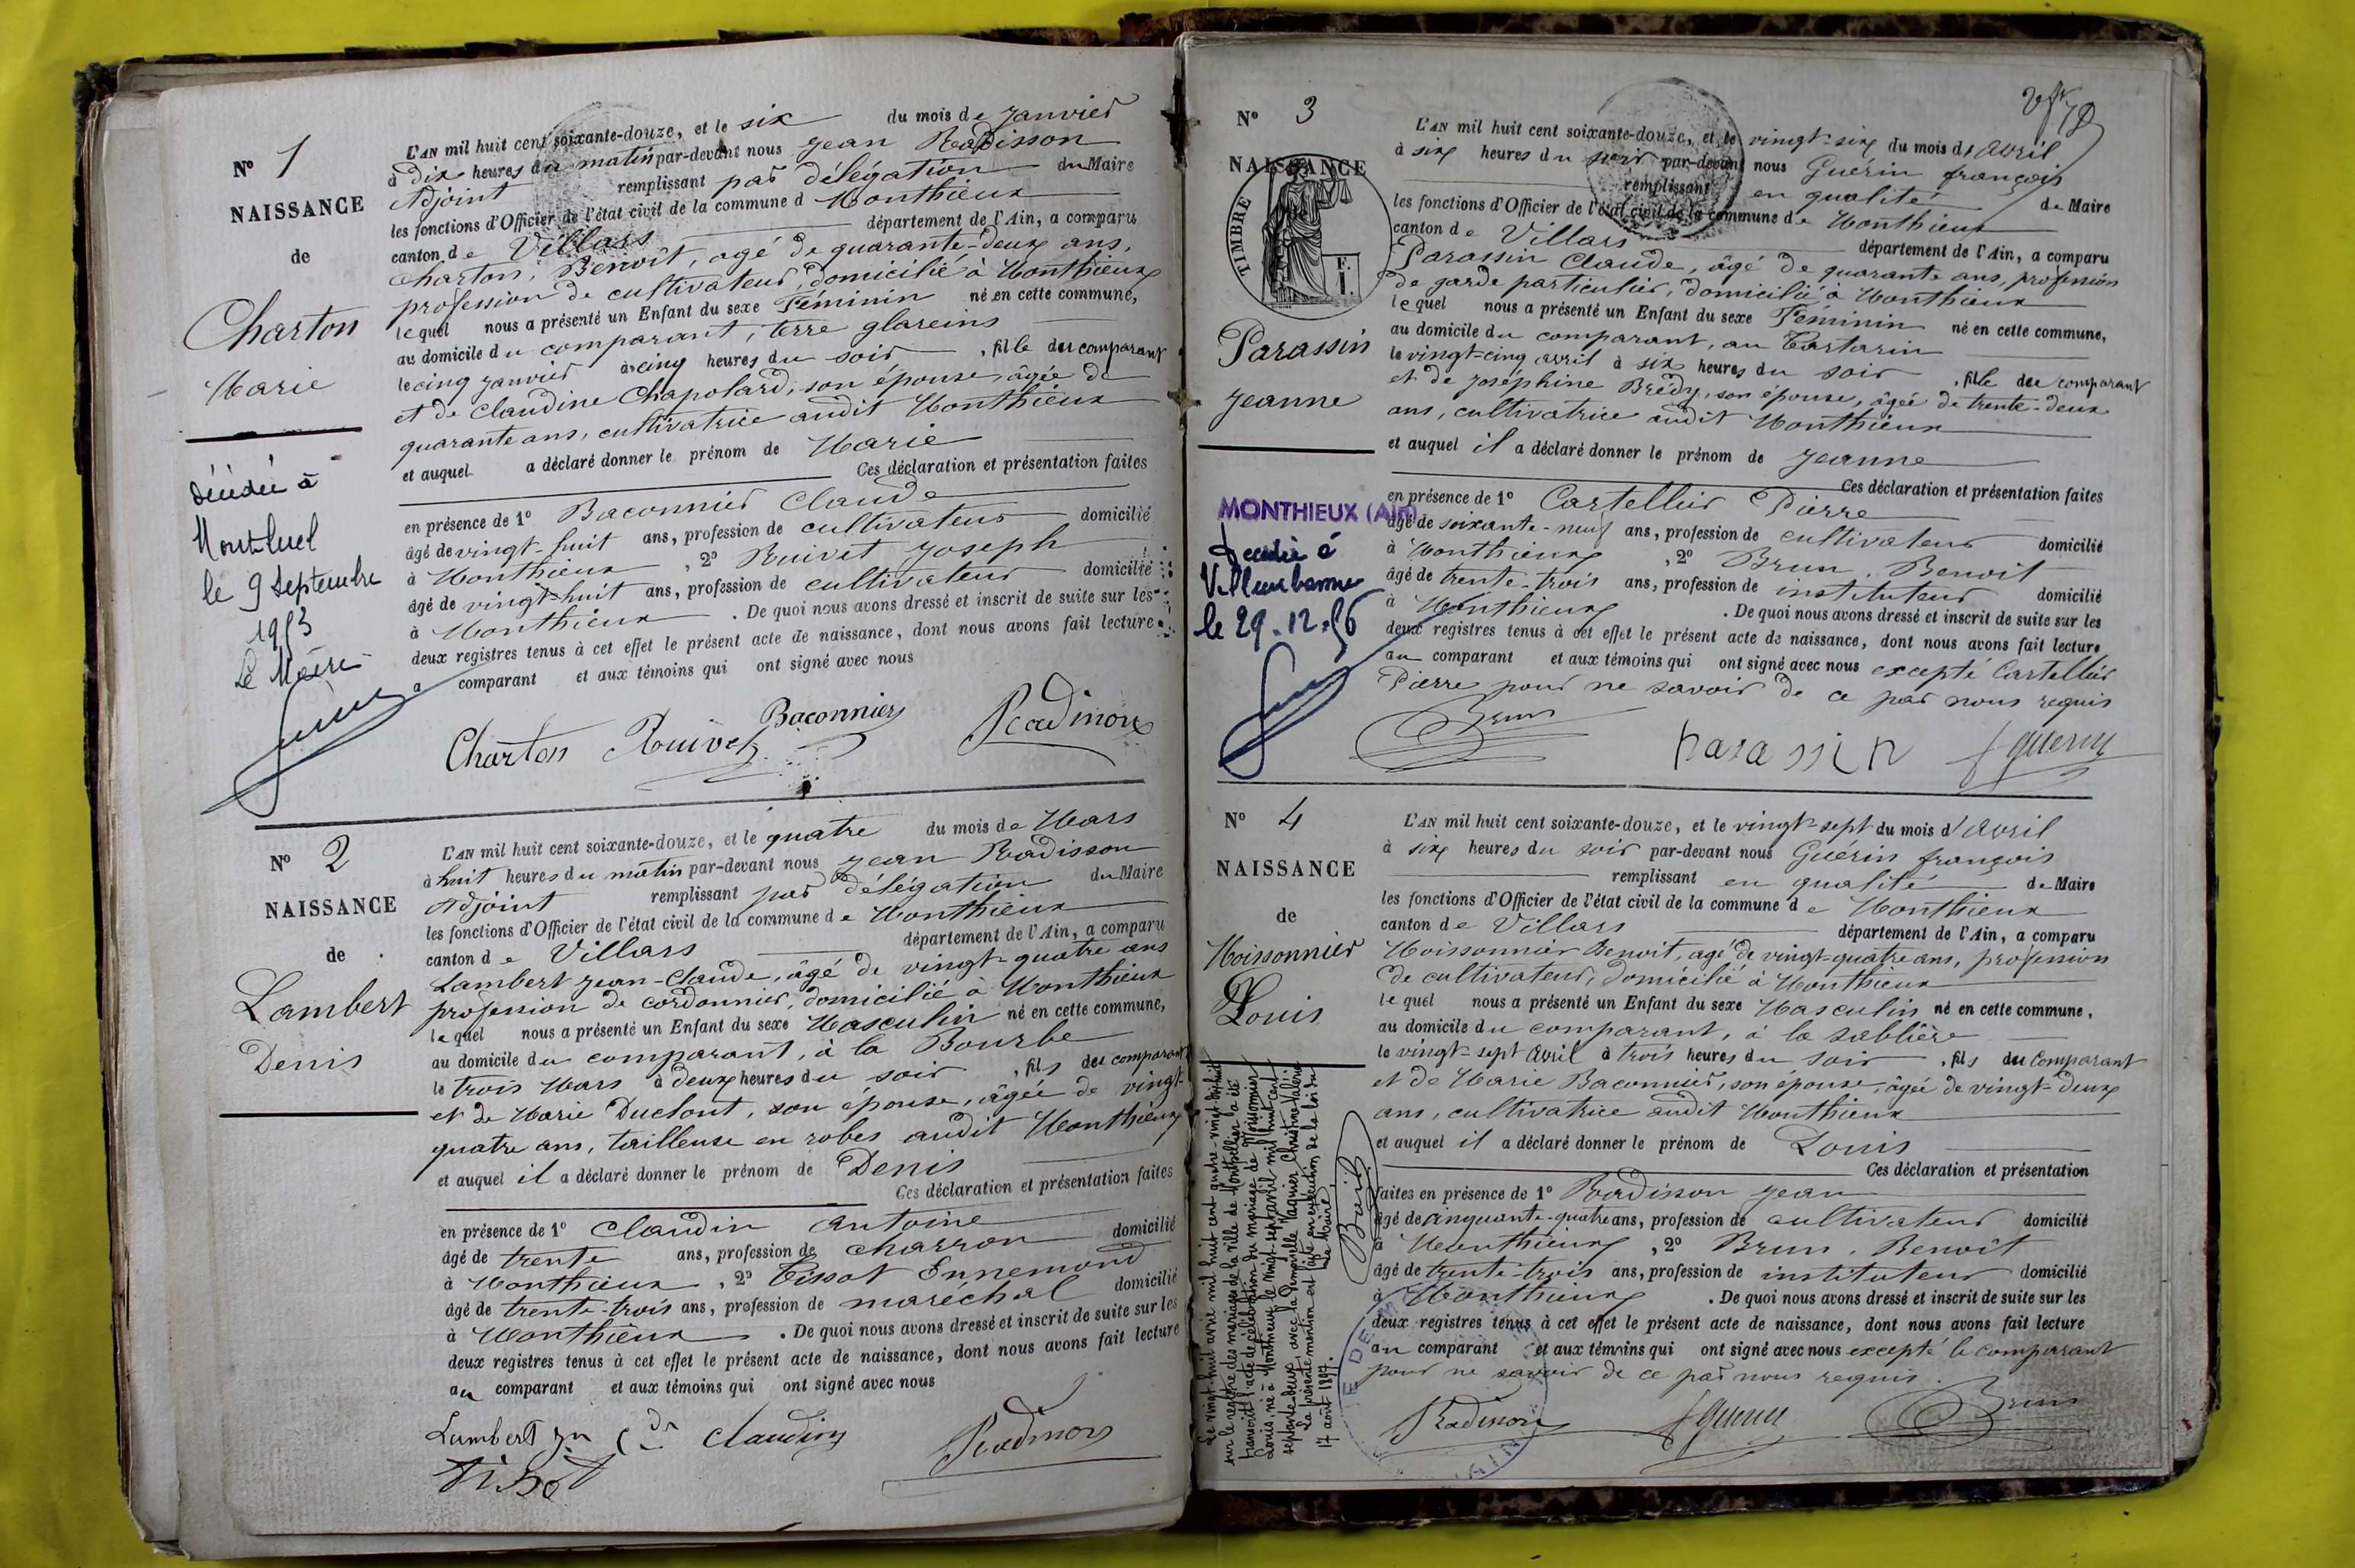 N° 1
NAISSANCE
de
Charton
Marie
décédée à
Montluel
le 9 Septembre
1953
Le Maire
L'AN mil huit cent soixante-douze, et le six du mois de Janvier
à Dix heures du matin par-devant nous Jean Radisson
Adjoint remplissant par délégation du Maire
les fonctions d'Officier de l'état civil de la commune d Monthieux
canton de Villars département de l'Ain, a comparu
Charton, Benoît, agé de quarante-deux ans,
profession de cultivateur, domicilié à Monthieux
lequel nous a présenté un Enfant du sexe Féminin né en cette commune,
au domicile du comparant, terre glareins
le cinq Janvier à cinq heures du soir, fille du comparant
et de Claudine Chapolard, son épouse, âgée de
quarante ans, cultivatrice audit Monthieux
et auquel a déclaré donner le prénom de Marie
Ces déclaration et présentation faites
en présence de 1° Baconnier Claude
âgé de vingt-huit ans, profession de cultivateur domicilié
à Monthieux, 2° Ruivet Joseph
âgé de vingt-huit ans, profession de cultivateur domicilié
à Monthieux. De quoi nous avons dressé et inscrit de suite sur les
deux registres tenus à cet effet le présent acte de naissance, dont nous avons fait lecture
a comparant et aux témoins qui ont signé avec nous
Charton Ruivet Baconnier Radisson
N° 2
NAISSANCE
de
Lambert
Denis
L'AN mil huit cent soixante-douze, et le quatre du mois de Mars
à huit heures du matin par-devant nous Jean Radisson
Adjoint remplissant par délégation du Maire
les fonctions d'Officier de l'état civil de la commune de Monthieux
canton de Villars département de l'Ain, a comparu
Lambert Jean-Claude, âgé de vingt-quatre ans
profession de cordonnier, domicilié à Monthieux
lequel nous a présenté un Enfant du sexe Masculin né en cette commune,
au domicile du comparant, à la Bourbe
le trois Mars à deux heures du soir, fils du comparant
et de Marie Duclout, son épouse, âgée de vingt-
quatre ans, tailleuse en robes audit Monthieux
et auquel il a déclaré donner le prénom de Denis
Ces déclaration et présentation faites
en présence de 1° Claudin Antoine
âgé de trente ans, profession de charron domicilié
à Monthieux, 2° Tissot Ennemond
âgé de trente-trois ans, profession de maréchal domicilié
à Monthieux. De quoi nous avons dressé et inscrit de suite sur les
deux registres tenus à cet effet le présent acte de naissance, dont nous avons fait lecture
au comparant et aux témoins qui ont signé avec nous
Lambert jn Cde Claudin Radisson
tissot
N° 3
NAISSANCE
TIMBRE
Parassin
Jeanne
MONTHIEUX (Ain)
décédée à
Villeurbanne
le 29.12.56
L'AN mil huit cent soixante-douze, et le vingt-six du mois d'Avril
à six heures du soir par-devant nous Guérin françois
remplissant en qualité de Maire
les fonctions d'Officier de l'état civil de la commune de Monthieux
canton de Villars département de l'Ain, a comparu
Parassin Claude, âgé de quarante ans, profession
de garde particulier, domicilié à Monthieux
lequel nous a présenté un Enfant du sexe Féminin né en cette commune,
au domicile du comparant, au Tartarin
le vingt-cinq avril à six heures du soir, fille du comparant
et de Joséphine Brédy, son épouse, âgée de trente-deux
ans, cultivatrice audit Monthieux
et auquel il a déclaré donner le prénom de Jeanne
Ces déclaration et présentation faites
en présence de 1° Cartellier Pierre
âgé de soixante-neuf ans, profession de cultivateur domicilié
à Monthieux, 2° Brun, Benoit
âgé de trente-trois ans, profession de instituteur domicilié
à Monthieux. De quoi nous avons dressé et inscrit de suite sur les
deux registres tenus à cet effet le présent acte de naissance, dont nous avons fait lecture
au comparant et aux témoins qui ont signé avec nous excepté Cartellier
Pierre pour ne savoir de ce par nous requis
Brun parassin f guerin
N° 4
NAISSANCE
de
Moissonnier
Louis
L'AN mil huit cent soixante-douze, et le vingt-sept du mois d'Avril
à six heures du soir par-devant nous Guérin françois
remplissant en qualité de Maire
les fonctions d'Officier de l'état civil de la commune de Monthieux
canton de Villars département de l'Ain, a comparu
Moissonnier Benoit, agé de vingt-quatre ans, profession
de cultivateur, domicilié à Monthieux
lequel nous a présenté un Enfant du sexe Masculin né en cette commune,
au domicile du comparant, à la sablière
le vingt-sept Avril à trois heures du soir, fils du comparant
et de Marie Baconnier, son épouse, âgée de vingt-deux
ans, cultivatrice audit Monthieux
et auquel il a déclaré donner le prénom de Louis
Ces déclaration et présentation
faites en présence de 1° Radisson Jean
âgé de cinquante-quatre ans, profession de cultivateur domicilié
à Monthieux, 2° Brun, Benoit
âgé de trente-trois ans, profession de instituteur domicilié
à Monthieux. De quoi nous avons dressé et inscrit de suite sur les
deux registres tenus à cet effet le présent acte de naissance, dont nous avons fait lecture
au comparant et aux témoins qui ont signé avec nous excepté le comparant
pour ne savoir de ce par nous requis.
Radisson f guerin Brun
Le vingt huit avril mil huit cent quatre vingt dix huit
sur le registre des mariages de la ville de Montpellier la été
transcrit l'acte de célébration du mariage de Moissonnier
Louis, né à Monthieux le vingt sept avril mil huit cent
septante deux, avec la Demoiselle Christine Valérie
La présente mention est faite en exécution de la loi du
17 août 1897.
Le Maire,